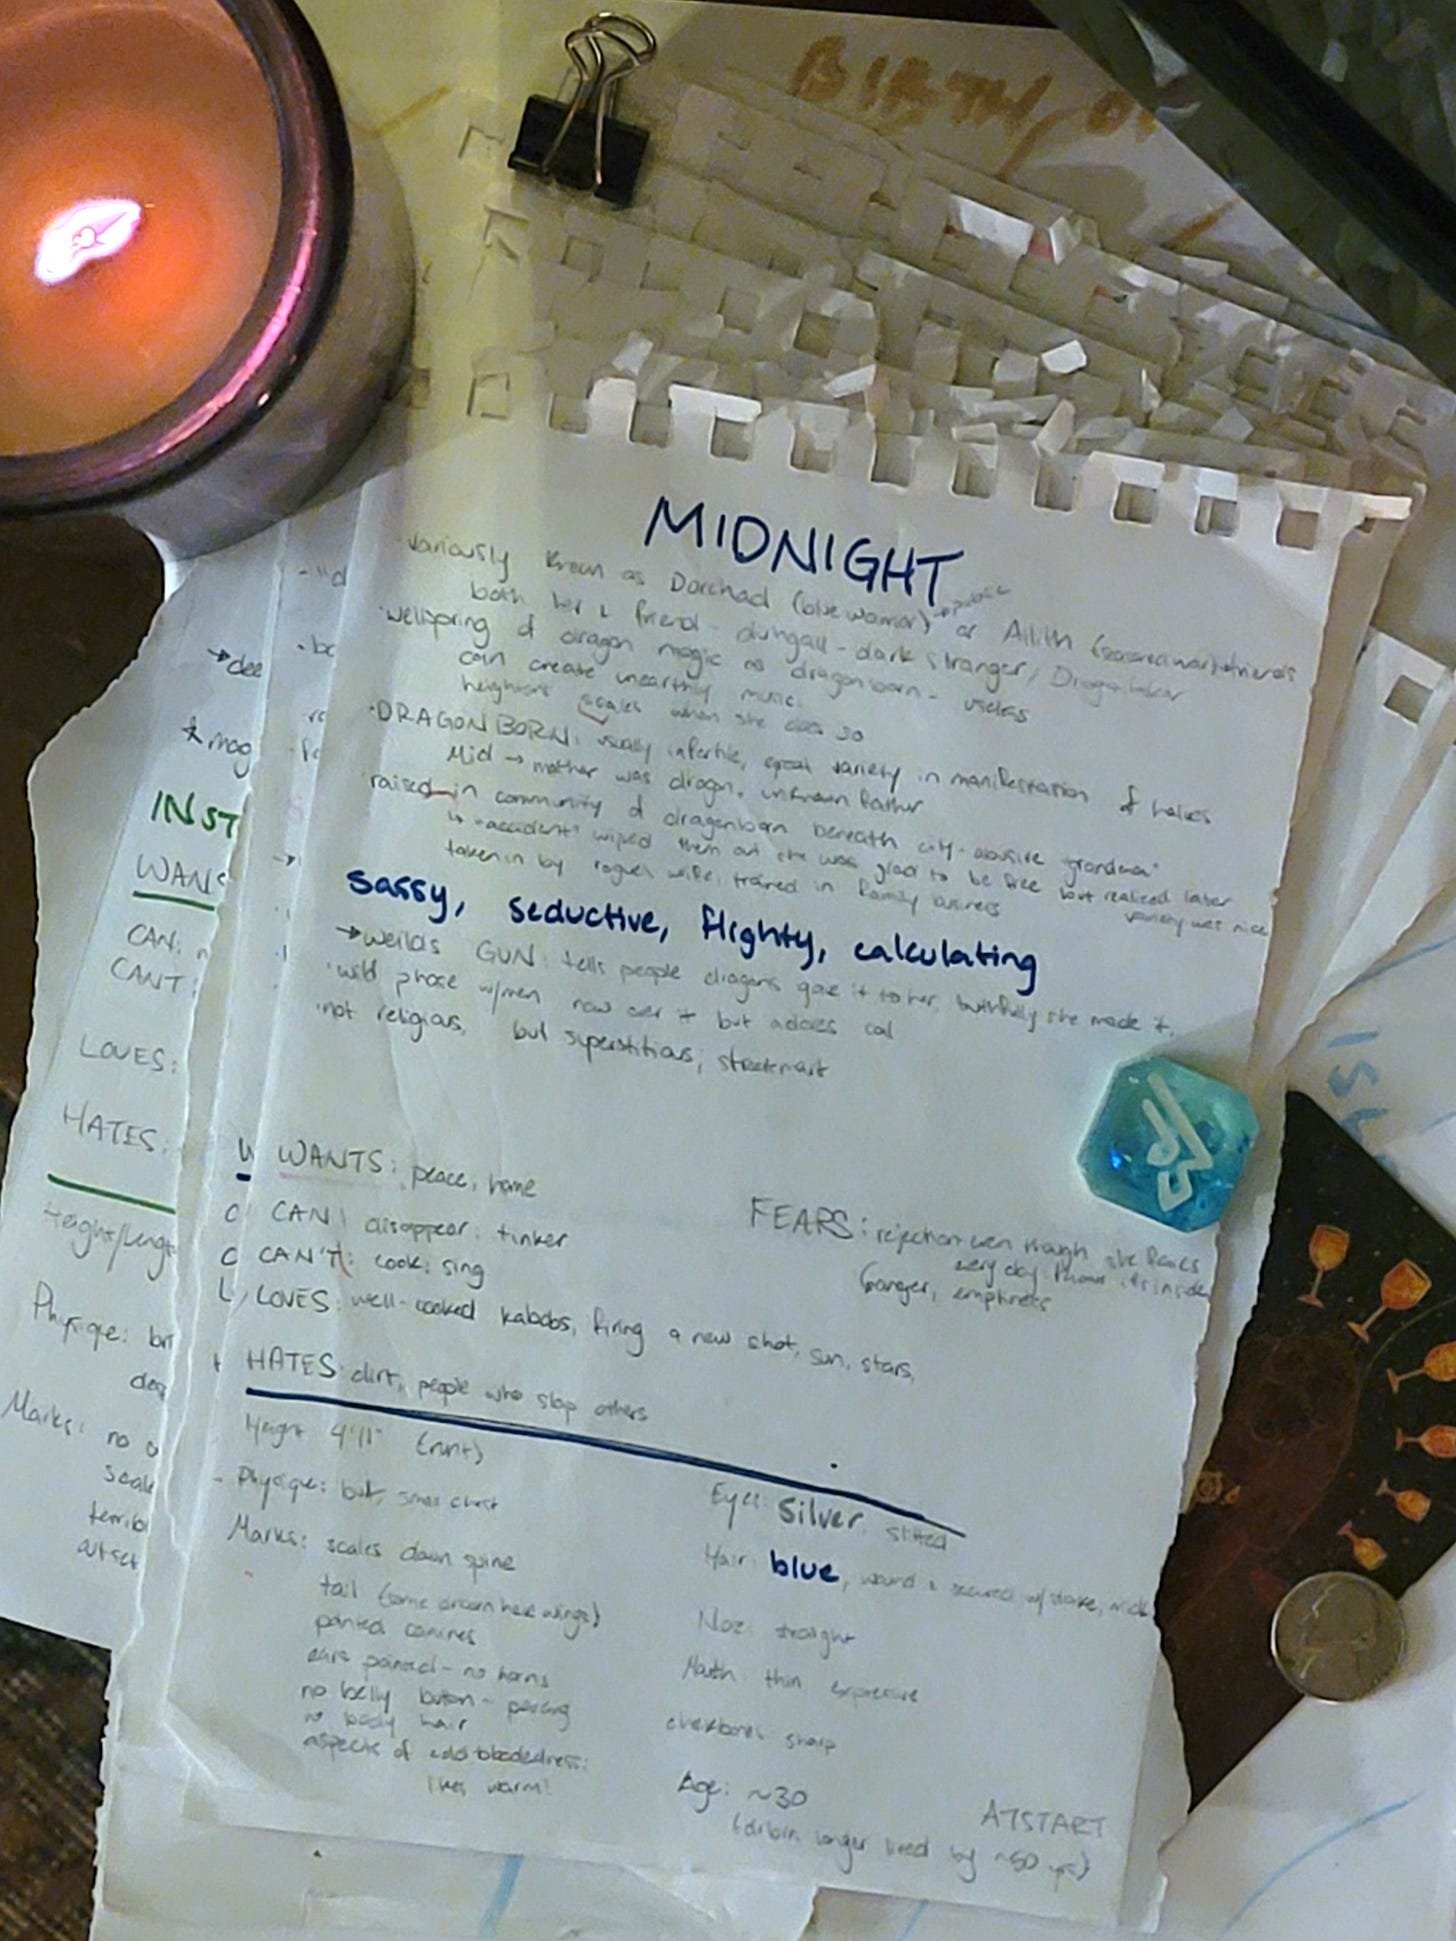 BIRTH, O
MIDNIGHT
variously known as Dorchad (blue warrior) → public or Ailith (seasoned war) → friends
both her & friend - duhgall - dark stranger,
wellspring of dragon magic no dragonborn - useless
can create unearthly music.
heightens scales when she does so
· DRAGONBORN: usually infertile, great variety in manifestation of halves
Mid → mother was dragon, unknown father
raised in community of dragonborn beneath city - abusive "grandma"
↳ "accident" wiped them out she was glad to be free but realized later
variety was nice
taken in by rogue & wife, trained in family business
sassy, seductive, flighty, calculating
→ weilds GUN: tells people dragons gave it to her, truthfully she made it.
· wild phase w/men now over it but addes cal
· not religious, but superstitious; streetsmart
WANTS: peace, home
CAN: disappear; tinker
CAN'T: cook; sing
LOVES: well-cooked kabobs, firing a new shot, sun, stars,
HATES: dirt, people who slap others
FEARS: rejection even though she faces
every day. Knows its inside
hunger, emptiness
Height 4'11" (runt)
Physique: butt, small chest
Marks: scales down spine
tail (some drborn have wings)
pointed canines
ears pointed - no horns
no belly button - piercing
no body hair
aspects of coldbloodedness:
likes warm!
Eyes: silver, slitted
Hair: blue, wound & secured w/stake,
Noze: straight
Mouth: thin expressive
cheekbones sharp
Age: ~30
(drborn longer lived by ~50 yrs)
ATSTART
- "d
→ dee
· bc
* mag
INST
WANTS
CAN: n
CANT:
LOVES:
HATES:
Height/Lengt
Physique: bri
dee
Marks: no o
scale
terrib
outset
W
C
C
L
H
ISL